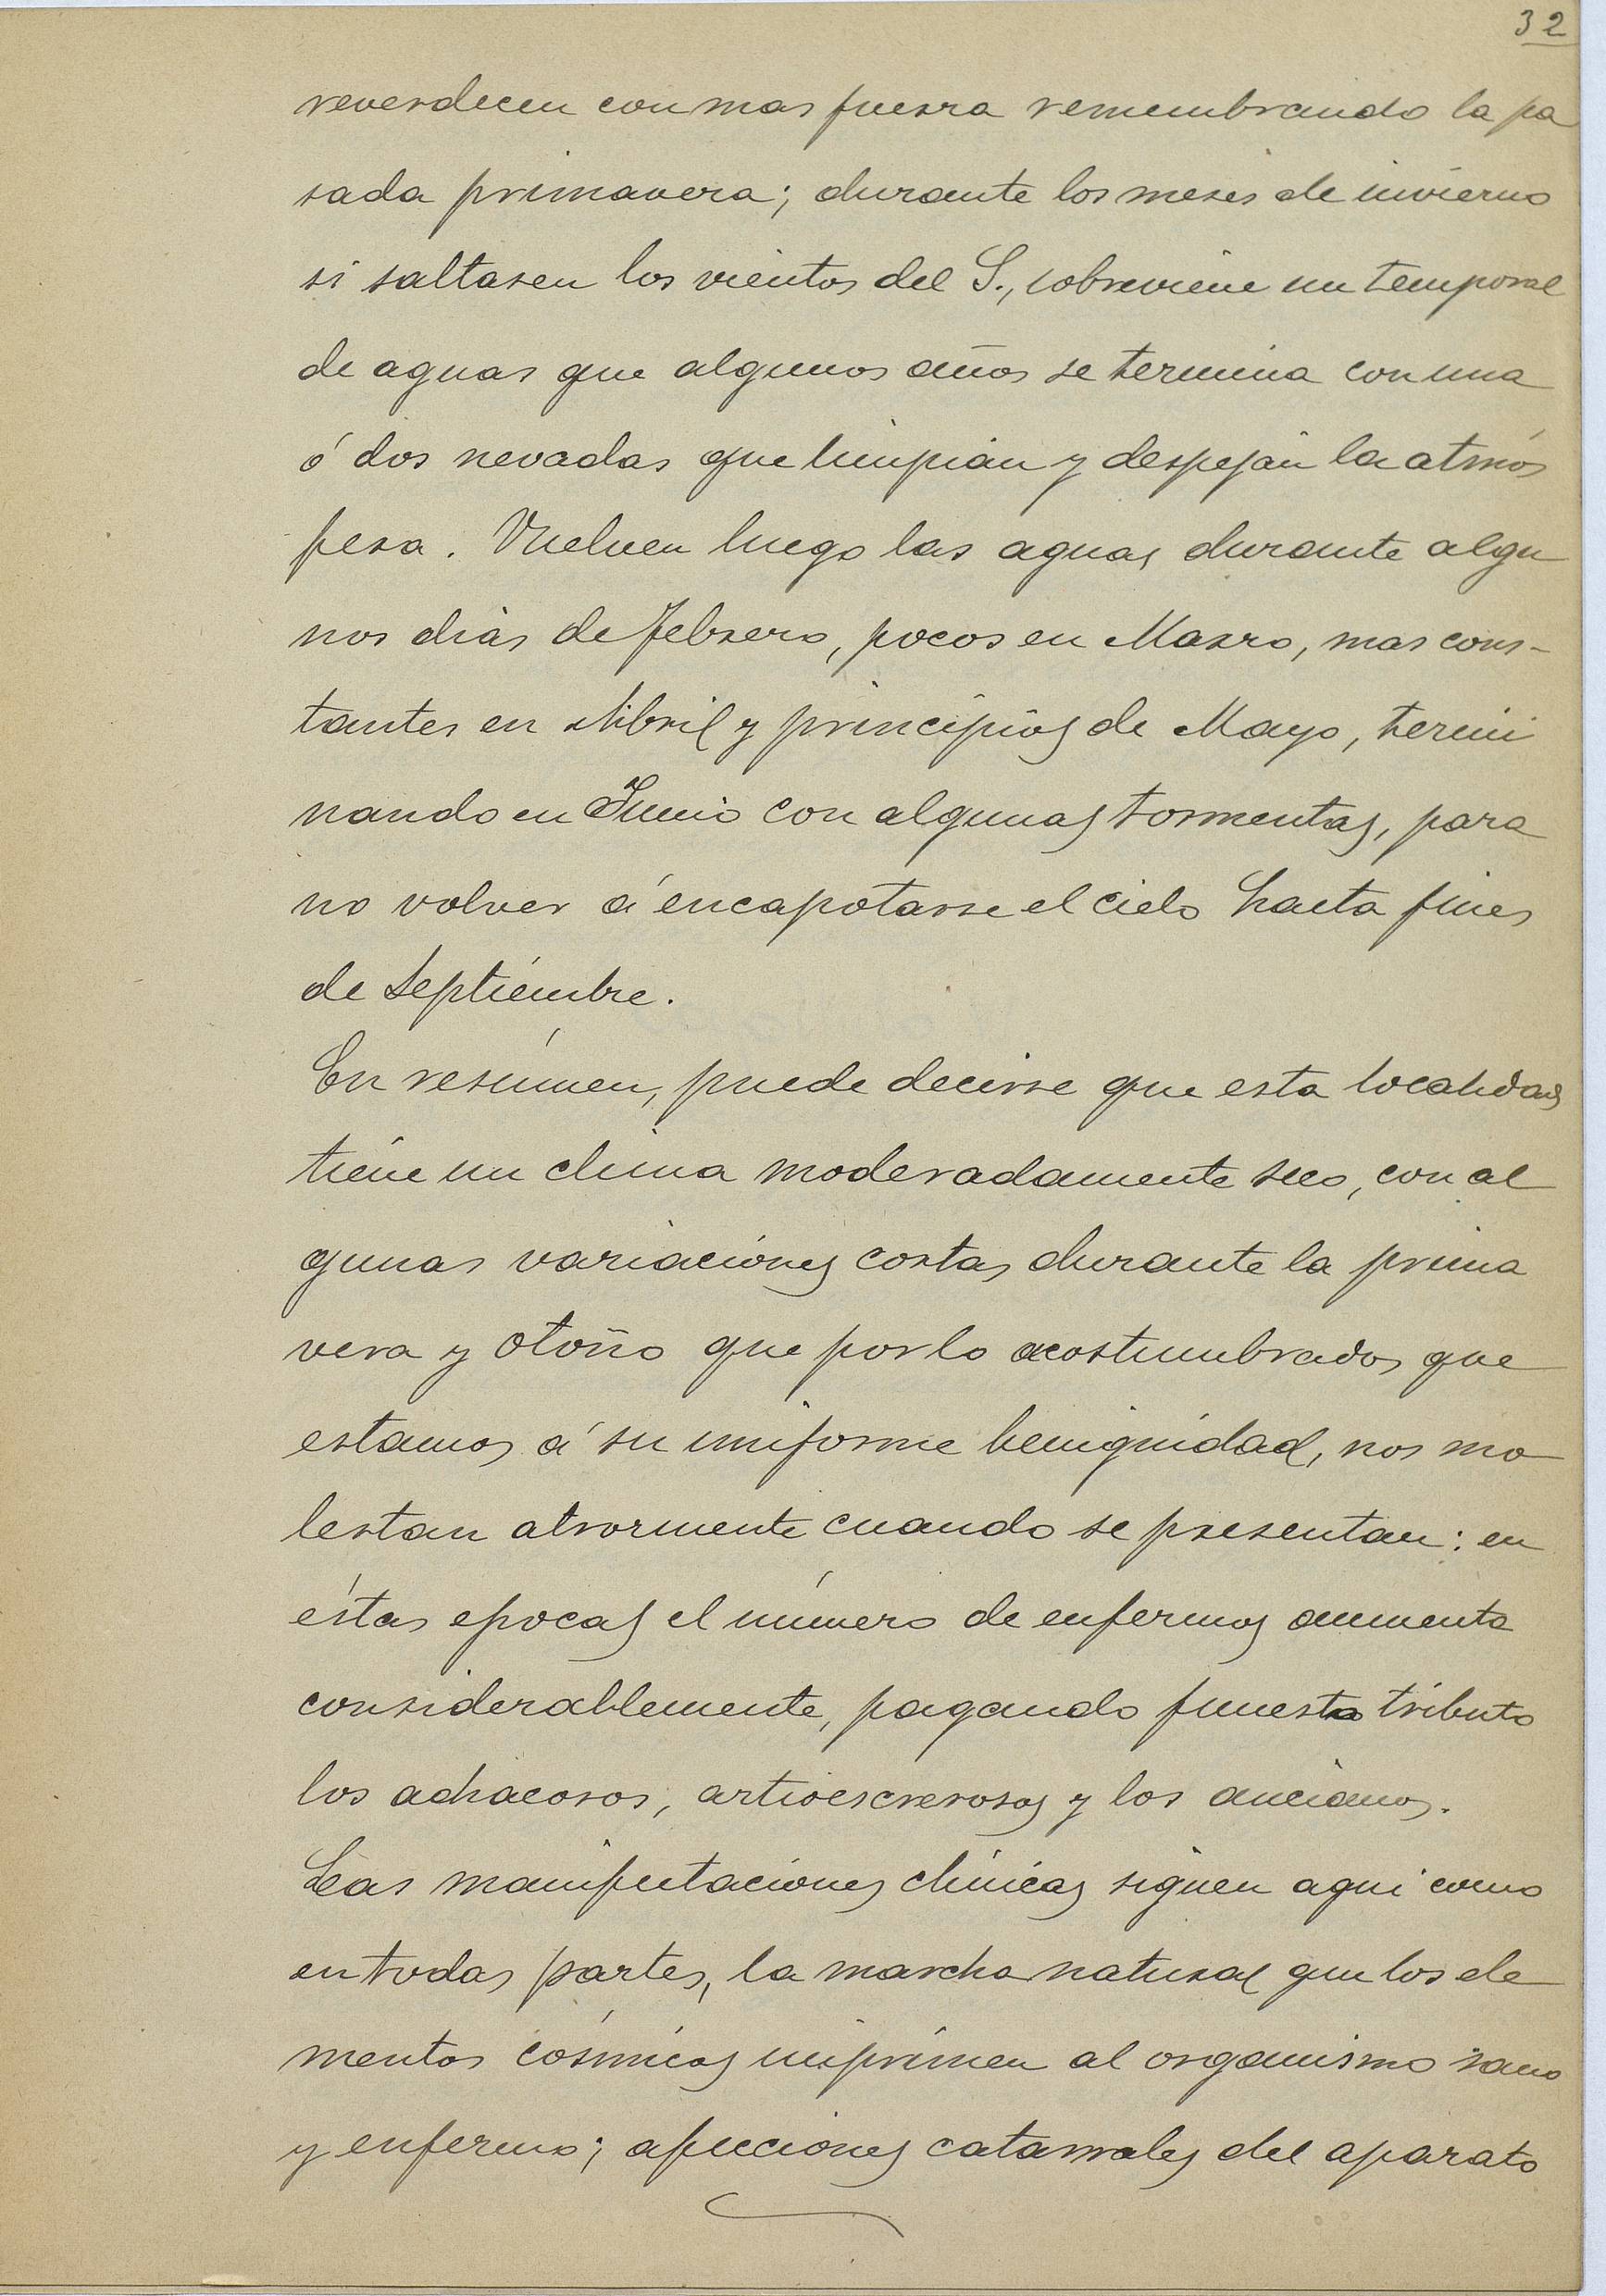 32
reverdecen con mas fuerza remembrando la pa
sada primavera; durante los meses de invierno
si saltasen los vientos del S., sobreviene un temporal
de aguas que algunos años se termina con una
ó dos nevadas que limpian y despejan la atmós
fera. Vuelven luego las aguas durante algu
nos dias de febrero, pocos en Marzo, mas cons-
tantes en Abril y principios de Mayo, termi
nando en Junio con algunas tormentas, para
no volver á encapotarse el cielo hasta fines
de Septiembre.
En resúmen, puede decirse que esta localidad
tiene un clima moderadamente seco, con al
gunas variaciones cortas durante la prima
vera y otoño que por lo acostumbrados que
estamos á su uniforme benignidad, nos mo
lestan atrozmente cuando se presentan: en
éstas epocas el número de enfermos aumenta
considerablemente, pagando funesto tributo
los achacosos, artioescrerosos y los ancianos.
Las manifestaciones clínicas siguen aqui como
en todas partes, la marcha natural que los ele
mentos cósmicos imprimen al organismo sano
y enfermo; afecciones catarrales del aparato